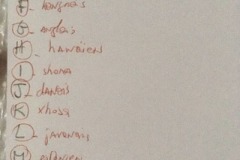 F- hongrois
G- anglais
H- hawaïen
I- shona
J- danois
K- xhosa
L- javanais
M-